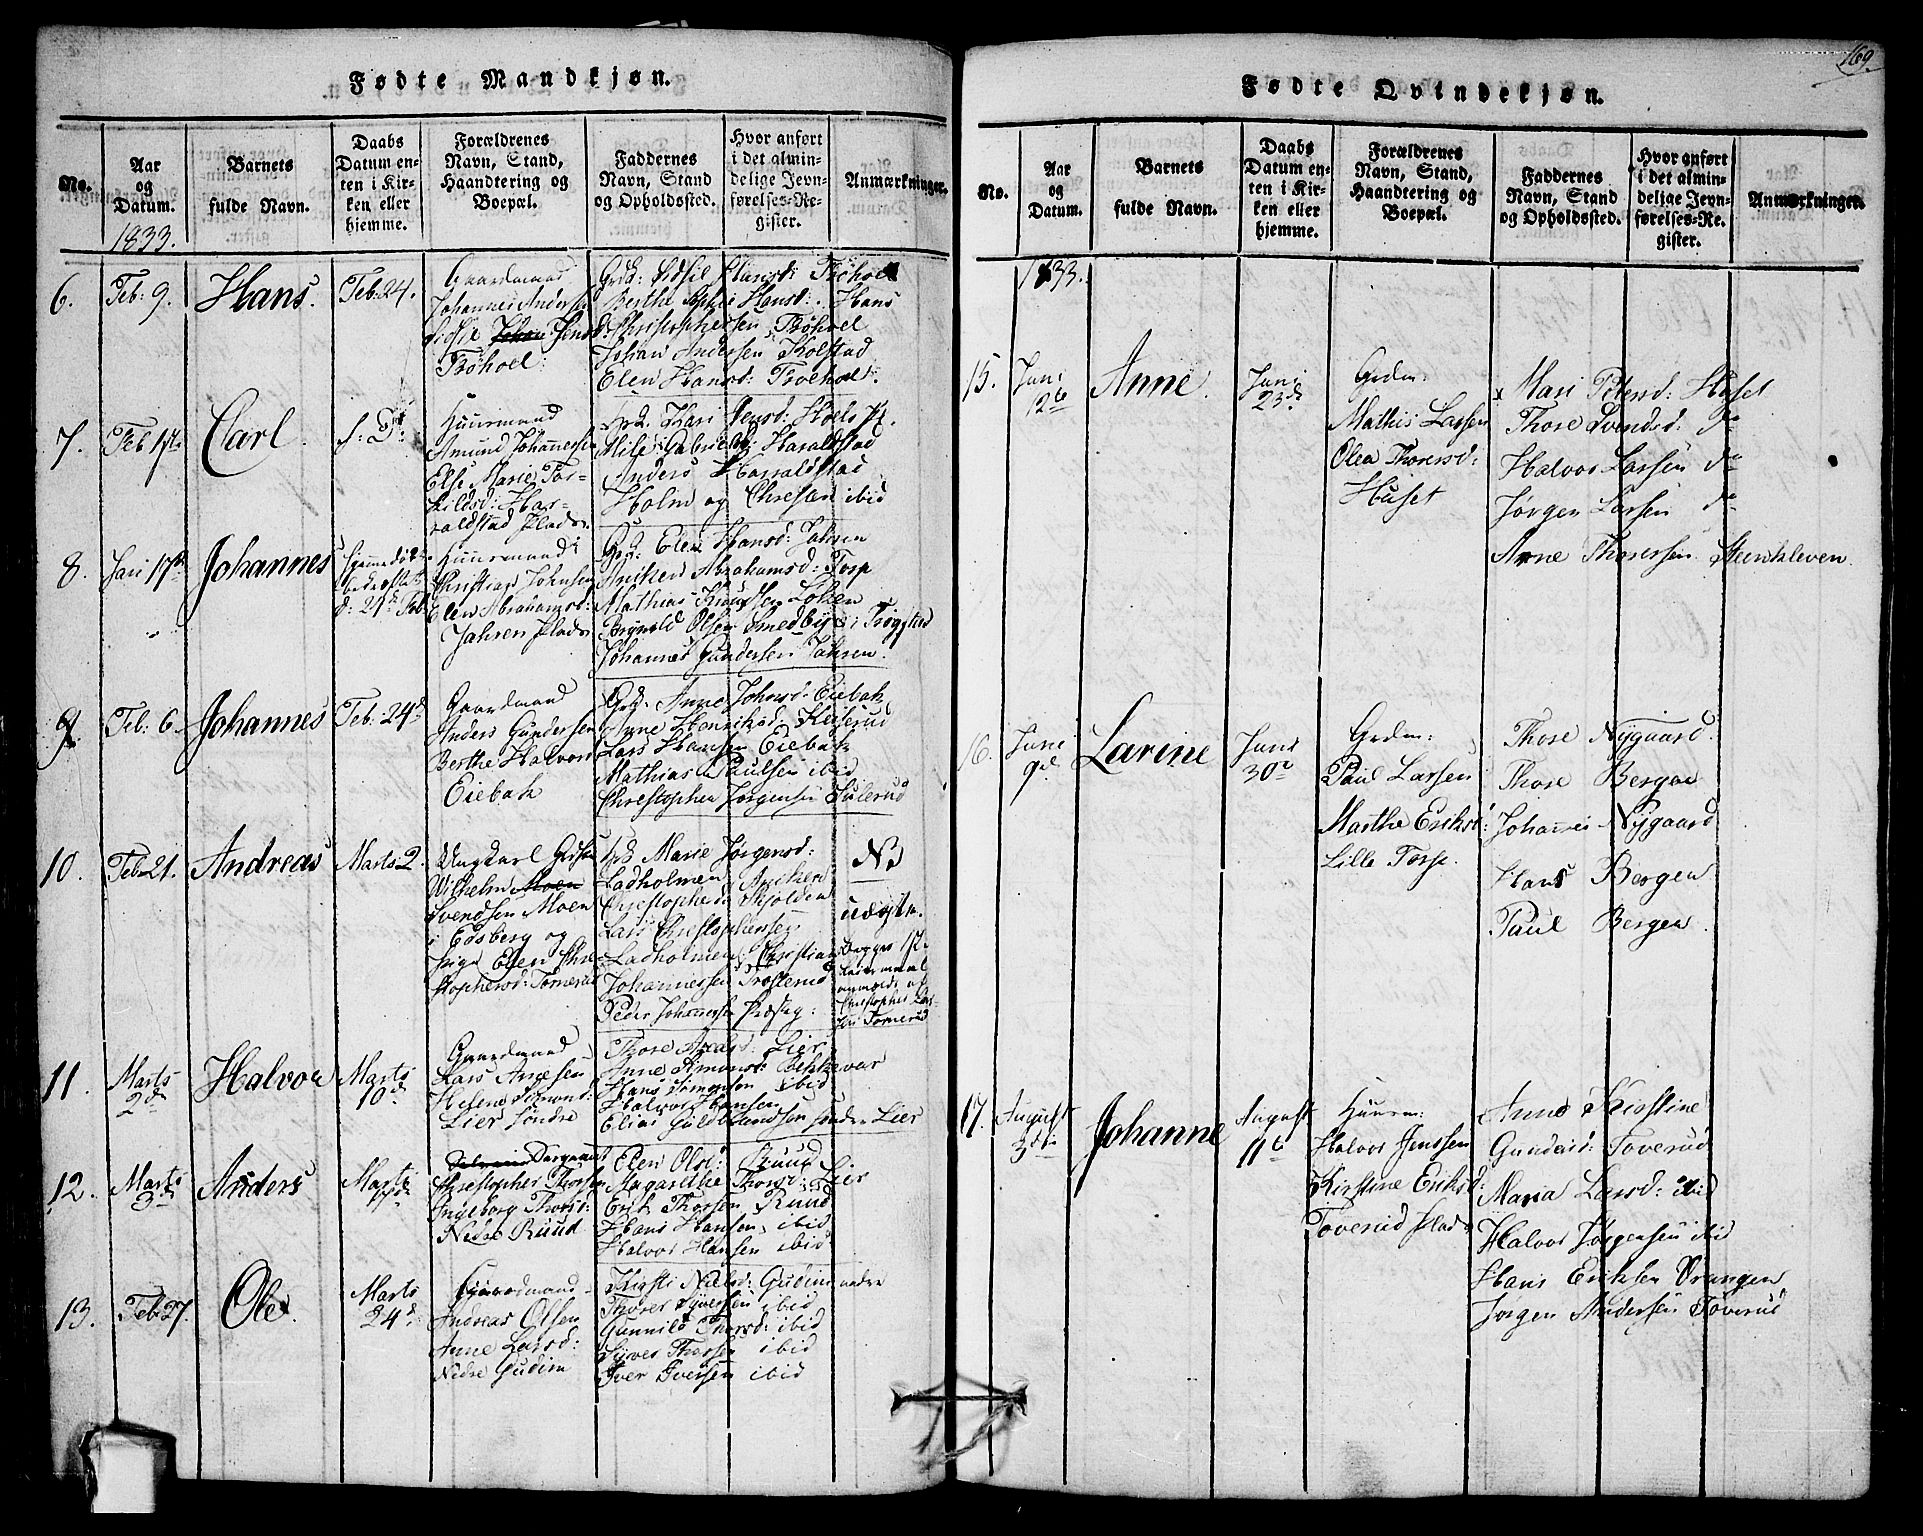 169.
Fødte Mandkjøn.
No.
Aar og Datum.
Barnets fulde Navn.
Daabs Datum enten i Kirken eller hjemme.
Forældrenes Navn, Stand, Haandtering og Boepæl.
Faddernes Navn, Stand og Opholdssted.
Hvor anført i det almindelige Jevnførelses-Register.
Anmærkninger.
1833.
6.
Feb: 9.
Hans.
Feb: 24.
Gaardmand
Johannes Anders
Trøhoel:
Berthe Hansd: Hans
Christophersen Trøhoel
Johan Andersen Kolstad
Elen Hansd: Troeholt.
7.
Feb 17de
Carl
Huusmand
Amund Johannessen
Else Marie Tor-
kildsd: Har-
raldstad Plads
Kari Jensd: Hoels
Haraldstad
Anders Harraldstad
Holm og ibid
8.
Jan 17de
Johannes
Huusmand
Christian Johnsen
Elen Abrahamsd:
Jahren Plads
Elen Hansd: Jahren
Aniken Abrahamsd: Torp
Mathias
Olsen Smedbye i Trøgstad
Johannes Gundersen Jahren.
9.
Feb: 6
Johannes
Feb: 24d
Gaardmand
Anders Gundersen
Berthe Halvorsd
Eiebak
Anne Johansd: Eiebak
Anne Henriksd: Keiserud
Lars Hansen Eiebak
Mathias Paulsen ibid
Christopher Jørgensen Sulerud
10.
Feb 21.
Andreas
Marts 2.
Ungkarl
Wilhelm Moen
Svendsen Moen
i Edsberg og
Pige Elen Chri-
stophersd: Tomerud
Marie Jørgensd:
Ladholmen Anichen
Christophersd Skjolden
Lars Christophersen
Ladholmen, Christian
Johannessen Trosterud
Peder Johannessen
NB
uægte.
Begges 1ste
Leiermaal
anmeldt af
Christopher Lar-
sen Tomerud
11.
Marts 2de
Halvor
Marts 10de
Gaardmand
Lars Anesen
Helene Simonsd:
Lier Søndre
Thore Andsd: Lier
Anne Simonsd: Bekkevar
Hans Simonsen ibid
Halvor Hansen
Elias Guldbrandsen søndre Lier
12.
Marts 3de
Anders
Marts
Christopher Thorsen
Ingeborg Thorsd:
Nedre Ruud
Elen Olsd: Ruud
Magarethe Thorsd: Lier
Erik Thorsen Ruud
Hans Hansen, ibid
Halvor Hansen ibid
13.
Feb 27.
Ole
Marts 24d
Gaardmand
Andreas Olsen
Anne Larsd:
Nedre Gudim
Kirsti Nielsd: Gudim nedre
Thorer Syversen ibid
Gunnild Thorsd: ibid
Syver Thorsen ibid
Iver Iversen ibid
Fødte Qvindekjøn.
No.
Aar og Datum.
Barnets fulde Navn.
Daabs Datum enten i Kirken eller hjemme.
Forældrenes Navn, Stand, Haandtering og Boepæl.
Faddernes Navn, Stand og Opholdssted.
Hvor anført i det almindelige Jevnførelses-Register.
Anmærkninger.
1833.
15.
Juni 12te
Anne
Juni 23d
Grdm:
Mathis Larsen
Olea Thoresd:
Huset
x Mari Petersd: Huset
Thore Svendsd: do
Halvor Larsen do
Jørgen Larsen do
Arne Thoresen Steenkleven
16.
June 9de
Larine
Juni 30te
Grdm:
Paul Larsen
Marthe Eriksd:
Lille Torp.
Thore Nygaard.
Thore Bergen
Johannes Nygaard
Hans Bergen
Paul Bergen
17.
August 3die
Johanne
August 11te
Huusm:
Halvor Jenssen
Kirstine Eriksd:
Toverud Plads
Anne Kirstine
Gundersd: Toverud
Maria Larsd: ibid
Halvor Jørgensen ibid
Hans Eriksen Vrangen
Jørgen Andersen Toverud